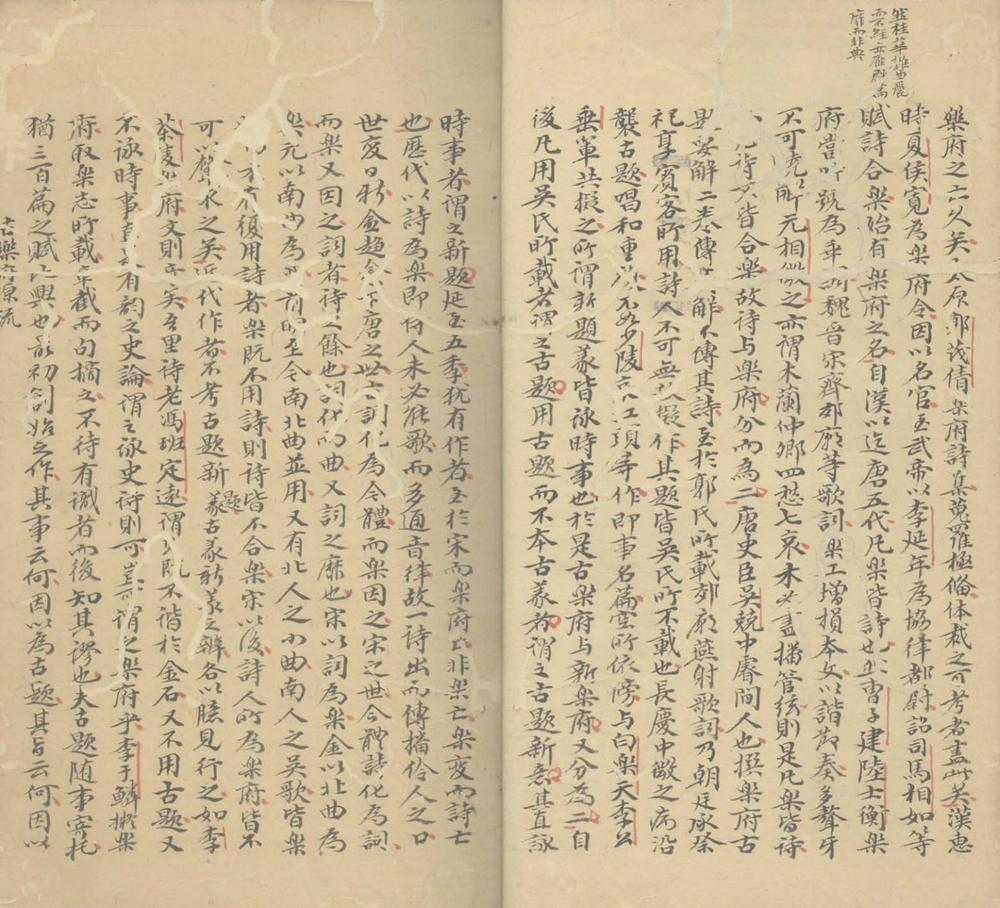 樂府之亡久矣太原郭茂倩樂府詩集蒐羅極偹体裁之可考者盡此矣漢惠
時夏侯寬為樂府令因以名官至武帝以李延年為協律都尉詔司馬相如等
賦詩合樂始有樂府之名自漢以迄唐五代凡樂皆詩也曹子建陸士衡樂
府當時號為乖調魏晉宋齊郊廟等歌詞樂工增損本文以諧節奏多聱牙
不可曉解元相似之亦謂木蘭仲卿四愁七哀未必盡播管絃則是凡樂皆詩
凡詩不皆合樂故詩与樂府分而為二唐史臣吳兢中睿間人也撰樂府古
題要解二卷傳解不傳其詩至於郭氏所載郊廟燕射歌詞乃朝廷承祭
祀享賓客所用詩人不可無故擬作其題皆吳氏所不載也長慶中微之病沿
襲古題唱和重複少陵哀江頭等作即事名篇空所依傍与白樂天李公
垂軰共擬之所謂新題義皆詠時事也於是古樂府与新樂府又分為二自
後凡用吳氏所載者謂之古題用古題而不本古義者謂之古題新意其直詠
然桂華雄麗
而不經
靡而非典
時事者謂之新題延至五季犹有作者至於宋而樂府亡非樂亡樂变而詩亡
也歷代以詩為樂即詩人未必能歌而多通音律故一詩出而傳播伶人之口
世变日新愈趨愈下唐之世古詞化為今體而樂因之宋之世今體詩化為詞
而樂又因之詞者詩之餘也詞代而曲又詞之靡也宋以詞為樂金以北曲為
樂元以南曲為前明至今南北曲並用又有北人之小曲南人之吳歌皆樂
復用詩者樂既不用詩則詩皆不合樂宋以後詩人所為樂府皆不
可以聲求之矣近代作者不考古題新題古義新義之辨各以臆見行之如李
茶陵樂府文則奇矣吾里詩老馮班定遠謂既不諧於金石又不用古題又
不詠時事直是有韵之史論謂之詠史詩則可豈可謂之樂府乎李于鱗擬樂
府取樂志所載截而句摘之不待有識者而後知其謬也夫古題随事寄托
猶三百篇之賦比興也最初創始之作其事云何因以為古題其旨云何因以
古樂府源流